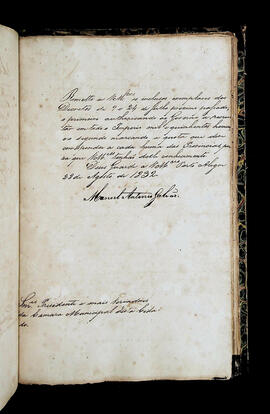 Remetto a VMces os inclusos exemplares dos
Decretos de 9 e 24 de Julho proximo passado,
o primeiro authorisando ao Governo a recru
tar em todo o Imperio mil e quinhentos homens
e o segundo marcando a quota que deve
a cada huma das Provincias pa
ra que VMces tenhão disto conhecimento
Deus Guarde a VMces Porto Alegre
23 de Agosto de 1832.
Manoel Antonio Galvão
Snres Presidente e mais Vereadores
da Camara Municipal desta Cida
de.